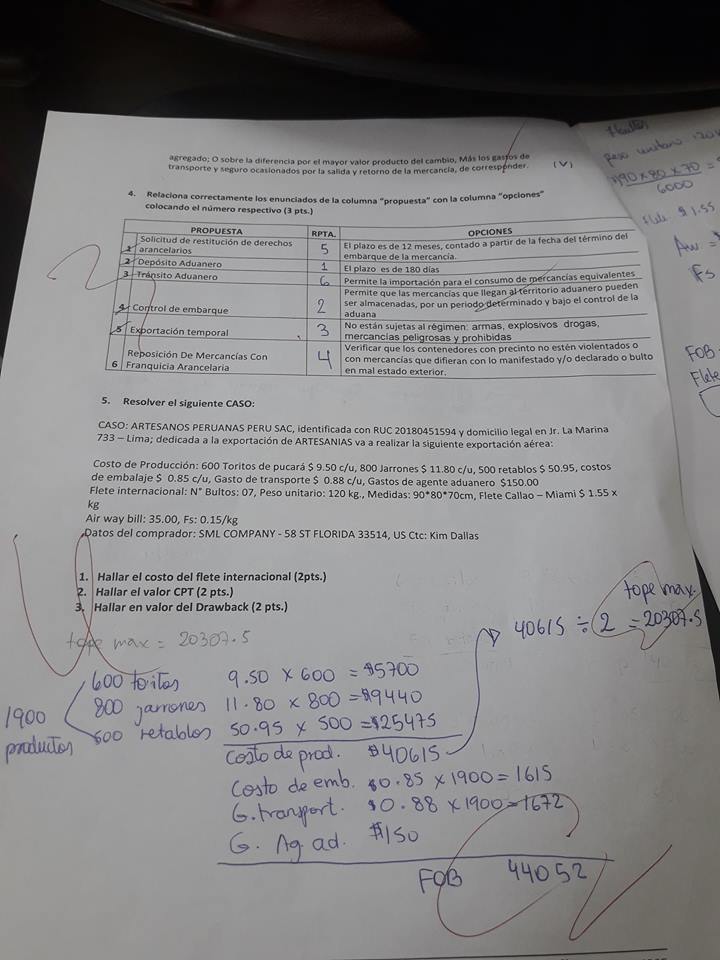 agregado; O sobre la diferencia por el mayor valor producto del cambio, Más los gastos de
transporte y seguro ocasionados por la salida y retorno de la mercancía, de corresponder. (V)
4. Relaciona correctamente los enunciados de la columna "propuesta" con la columna "opciones"
colocando el número respectivo (3 pts.)
PROPUESTA RPTA. OPCIONES
1 Solicitud de restitución de derechos arancelarios 5 El plazo es de 12 meses, contado a partir de la fecha del término del
embarque de la mercancía.
2 Depósito Aduanero 1 El plazo es de 180 días
3 Tránsito Aduanero 6 Permite la importación para el consumo de mercancías equivalentes
4 Control de embarque 2 Permite que las mercancías que llegan al territorio aduanero pueden
ser almacenadas, por un periodo determinado y bajo el control de la
aduana
5 Exportación temporal 3 No están sujetas al régimen: armas, explosivos drogas,
mercancías peligrosas y prohibidas
6 Reposición De Mercancías Con Franquicia Arancelaria 4 Verificar que los contenedores con precinto no estén violentados o
con mercancías que difieran con lo manifestado y/o declarado o bulto
en mal estado exterior.
5. Resolver el siguiente CASO:
CASO: ARTESANOS PERUANAS PERU SAC, identificada con RUC 20180451594 y domicilio legal en Jr. La Marina
733 – Lima; dedicada a la exportación de ARTESANIAS va a realizar la siguiente exportación aérea:
Costo de Producción: 600 Toritos de pucará $ 9.50 c/u, 800 Jarrones $ 11.80 c/u, 500 retablos $ 50.95, costos
de embalaje $ 0.85 c/u, Gasto de transporte $ 0.88 c/u, Gastos de agente aduanero $150.00
Flete internacional: N° Bultos: 07, Peso unitario: 120 kg., Medidas: 90*80*70cm, Flete Callao – Miami $ 1.55 x
kg
Air way bill: 35.00, Fs: 0.15/kg
Datos del comprador: SML COMPANY - 58 ST FLORIDA 33514, US Ctc: Kim Dallas
1. Hallar el costo del flete internacional (2pts.)
2. Hallar el valor CPT (2 pts.)
3. Hallar en valor del Drawback (2 pts.)
tope max = 20307.5
tope max.
40615 ÷ 2 = 20307.5
1900
productos
600 toritos 9.50 x 600 = $5700
800 jarrones 11.80 x 800 = $9440
500 retablos 50.95 x 500 = $25475
Costo de prod. $40615
Costo de emb. $0.85 x 1900 = 1615
G. transport. $0.88 x 1900 = 1672
G. Ag ad. $150
FOB 44052
peso unitario
90 x 80 x 70 =
6000
$ 1.55
Aw =
Fs
FOB
Flete